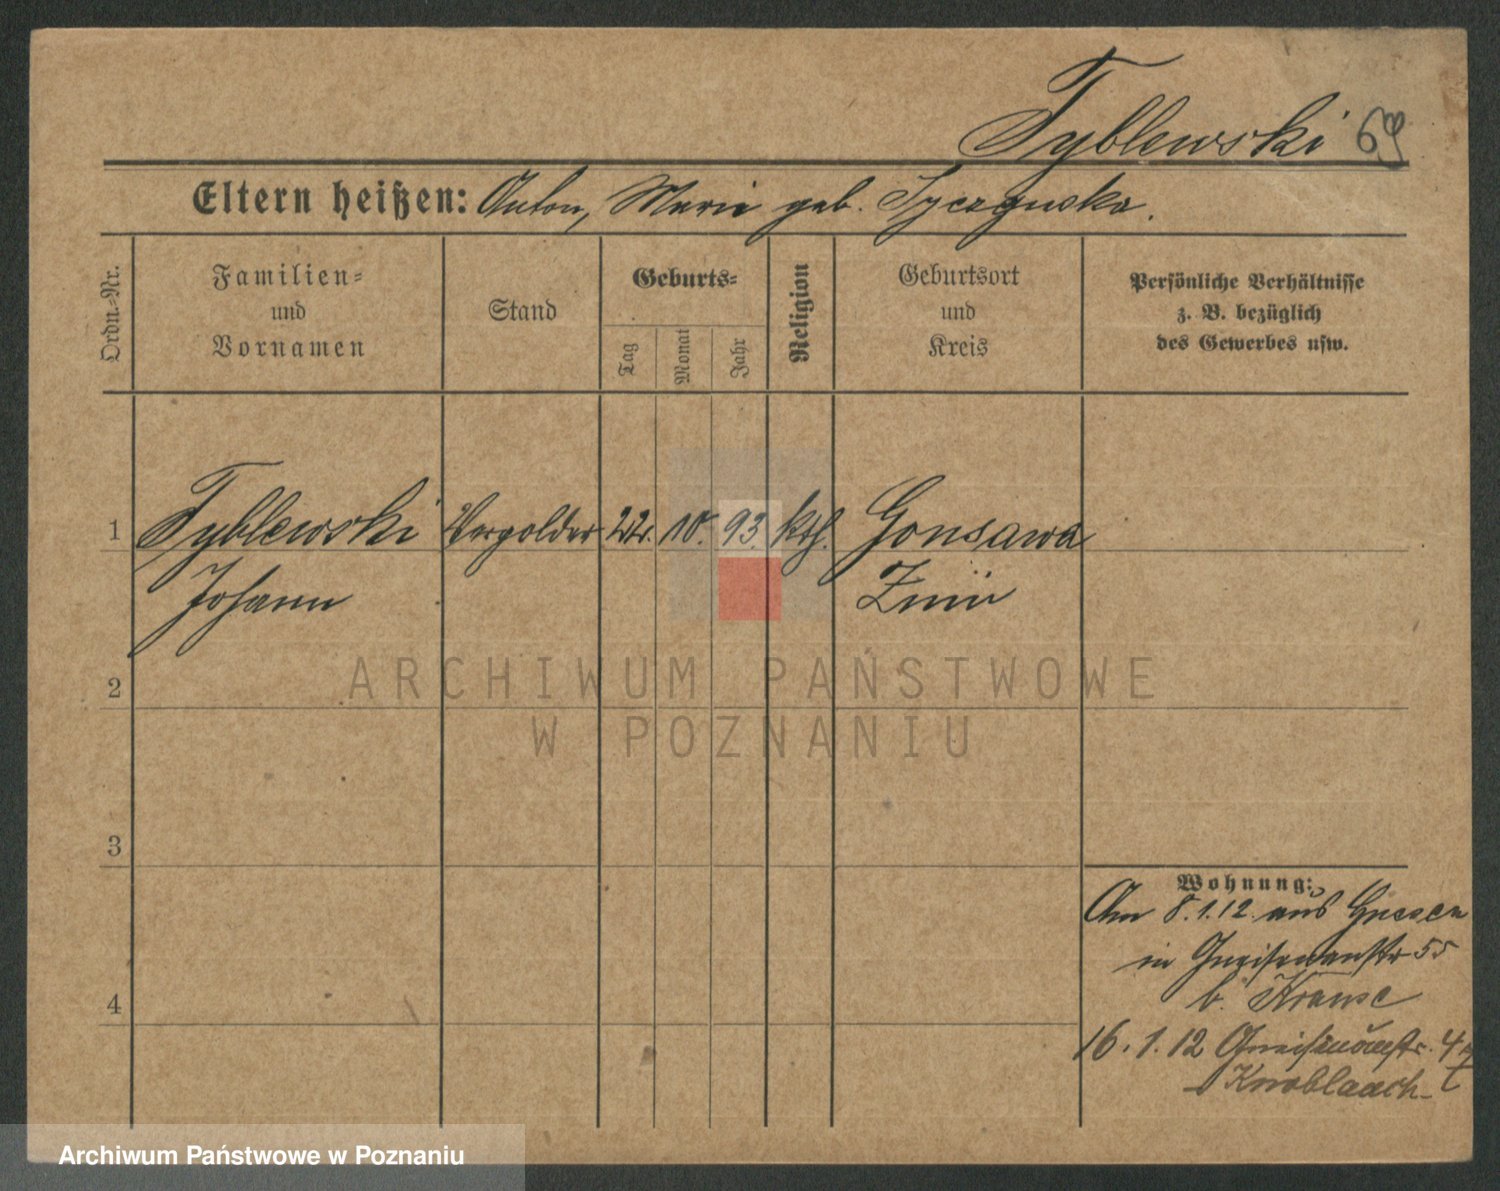 Tyblewski 69
Eltern heißen: Anton, Marie geb.
Ordn.-Nr.
Familien-
und
Vornamen
Stand
Geburts-
Tag
Monat
Jahr
Religion
Geburtsort
und
Kreis
Persönliche Verhältnisse
z. B. bezüglich
des Gewerbes usw.
1 Tyblewski Vergolder 22. 10. 93. kth. Gonsawa
Johann Znin
2
3
4
Wohnung:
Am 8.1.12. aus Gnesen
in Gneisenaustr 55
b. Krause
16.1.12 Gneisenaustr. 4
Knoblauch
ARCHIWUM PAŃSTWOWE
W POZNANIU
Archiwum Państwowe w Poznaniu